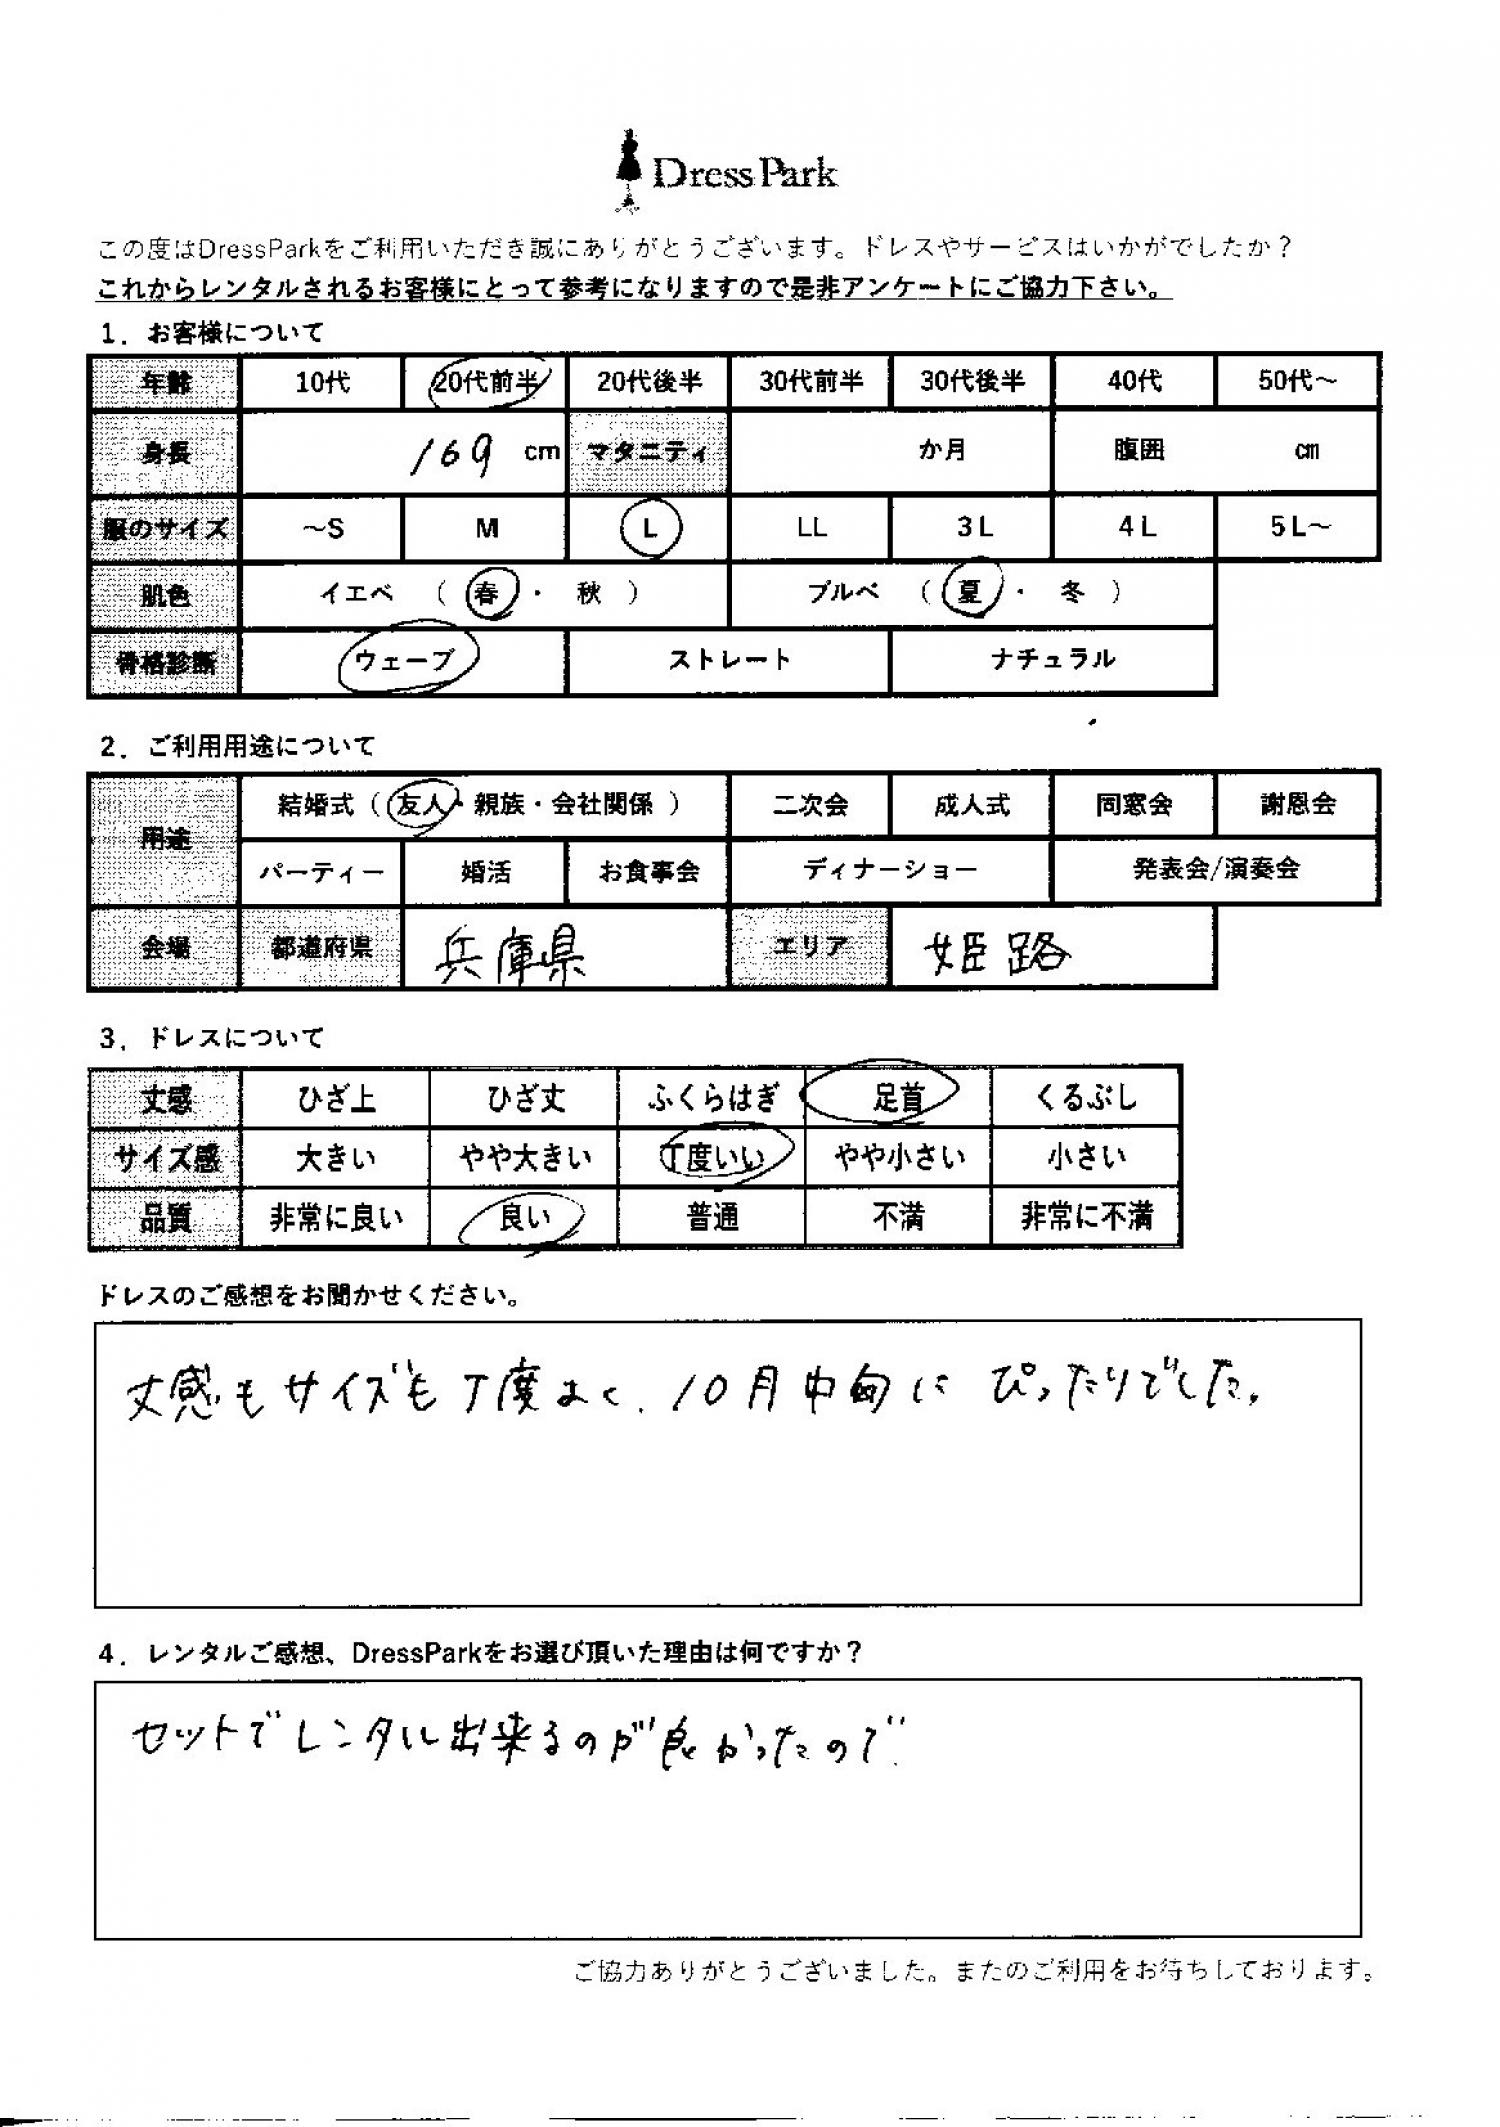 DressPark
この度はDressParkをご利用いただき誠にありがとうございます。ドレスやサービスはいかがでしたか？
これからレンタルされるお客様にとって参考になりますので是非アンケートにご協力下さい。
1．お客様について
年齢 10代 20代前半 20代後半 30代前半 30代後半 40代 50代～
身長 169 cm マタニティ か月 腹囲 ㎝
服のサイズ ～S M L LL 3L 4L 5L～
肌色 イエベ （ 春 ・ 秋 ） ブルベ （ 夏 ・ 冬 ）
骨格診断 ウェーブ ストレート ナチュラル
2．ご利用用途について
用途 結婚式（ 友人・親族・会社関係 ） 二次会 成人式 同窓会 謝恩会
パーティー 婚活 お食事会 ディナーショー 発表会/演奏会
会場 都道府県 兵庫県 エリア 姫路
3．ドレスについて
丈感 ひざ上 ひざ丈 ふくらはぎ 足首 くるぶし
サイズ感 大きい やや大きい 丁度いい やや小さい 小さい
品質 非常に良い 良い 普通 不満 非常に不満
ドレスのご感想をお聞かせください。
丈感もサイズも丁度よく、10月中旬にぴったりでした。
4．レンタルご感想、DressParkをお選び頂いた理由は何ですか？
セットでレンタル出来るのが良かったので。
ご協力ありがとうございました。またのご利用をお待ちしております。